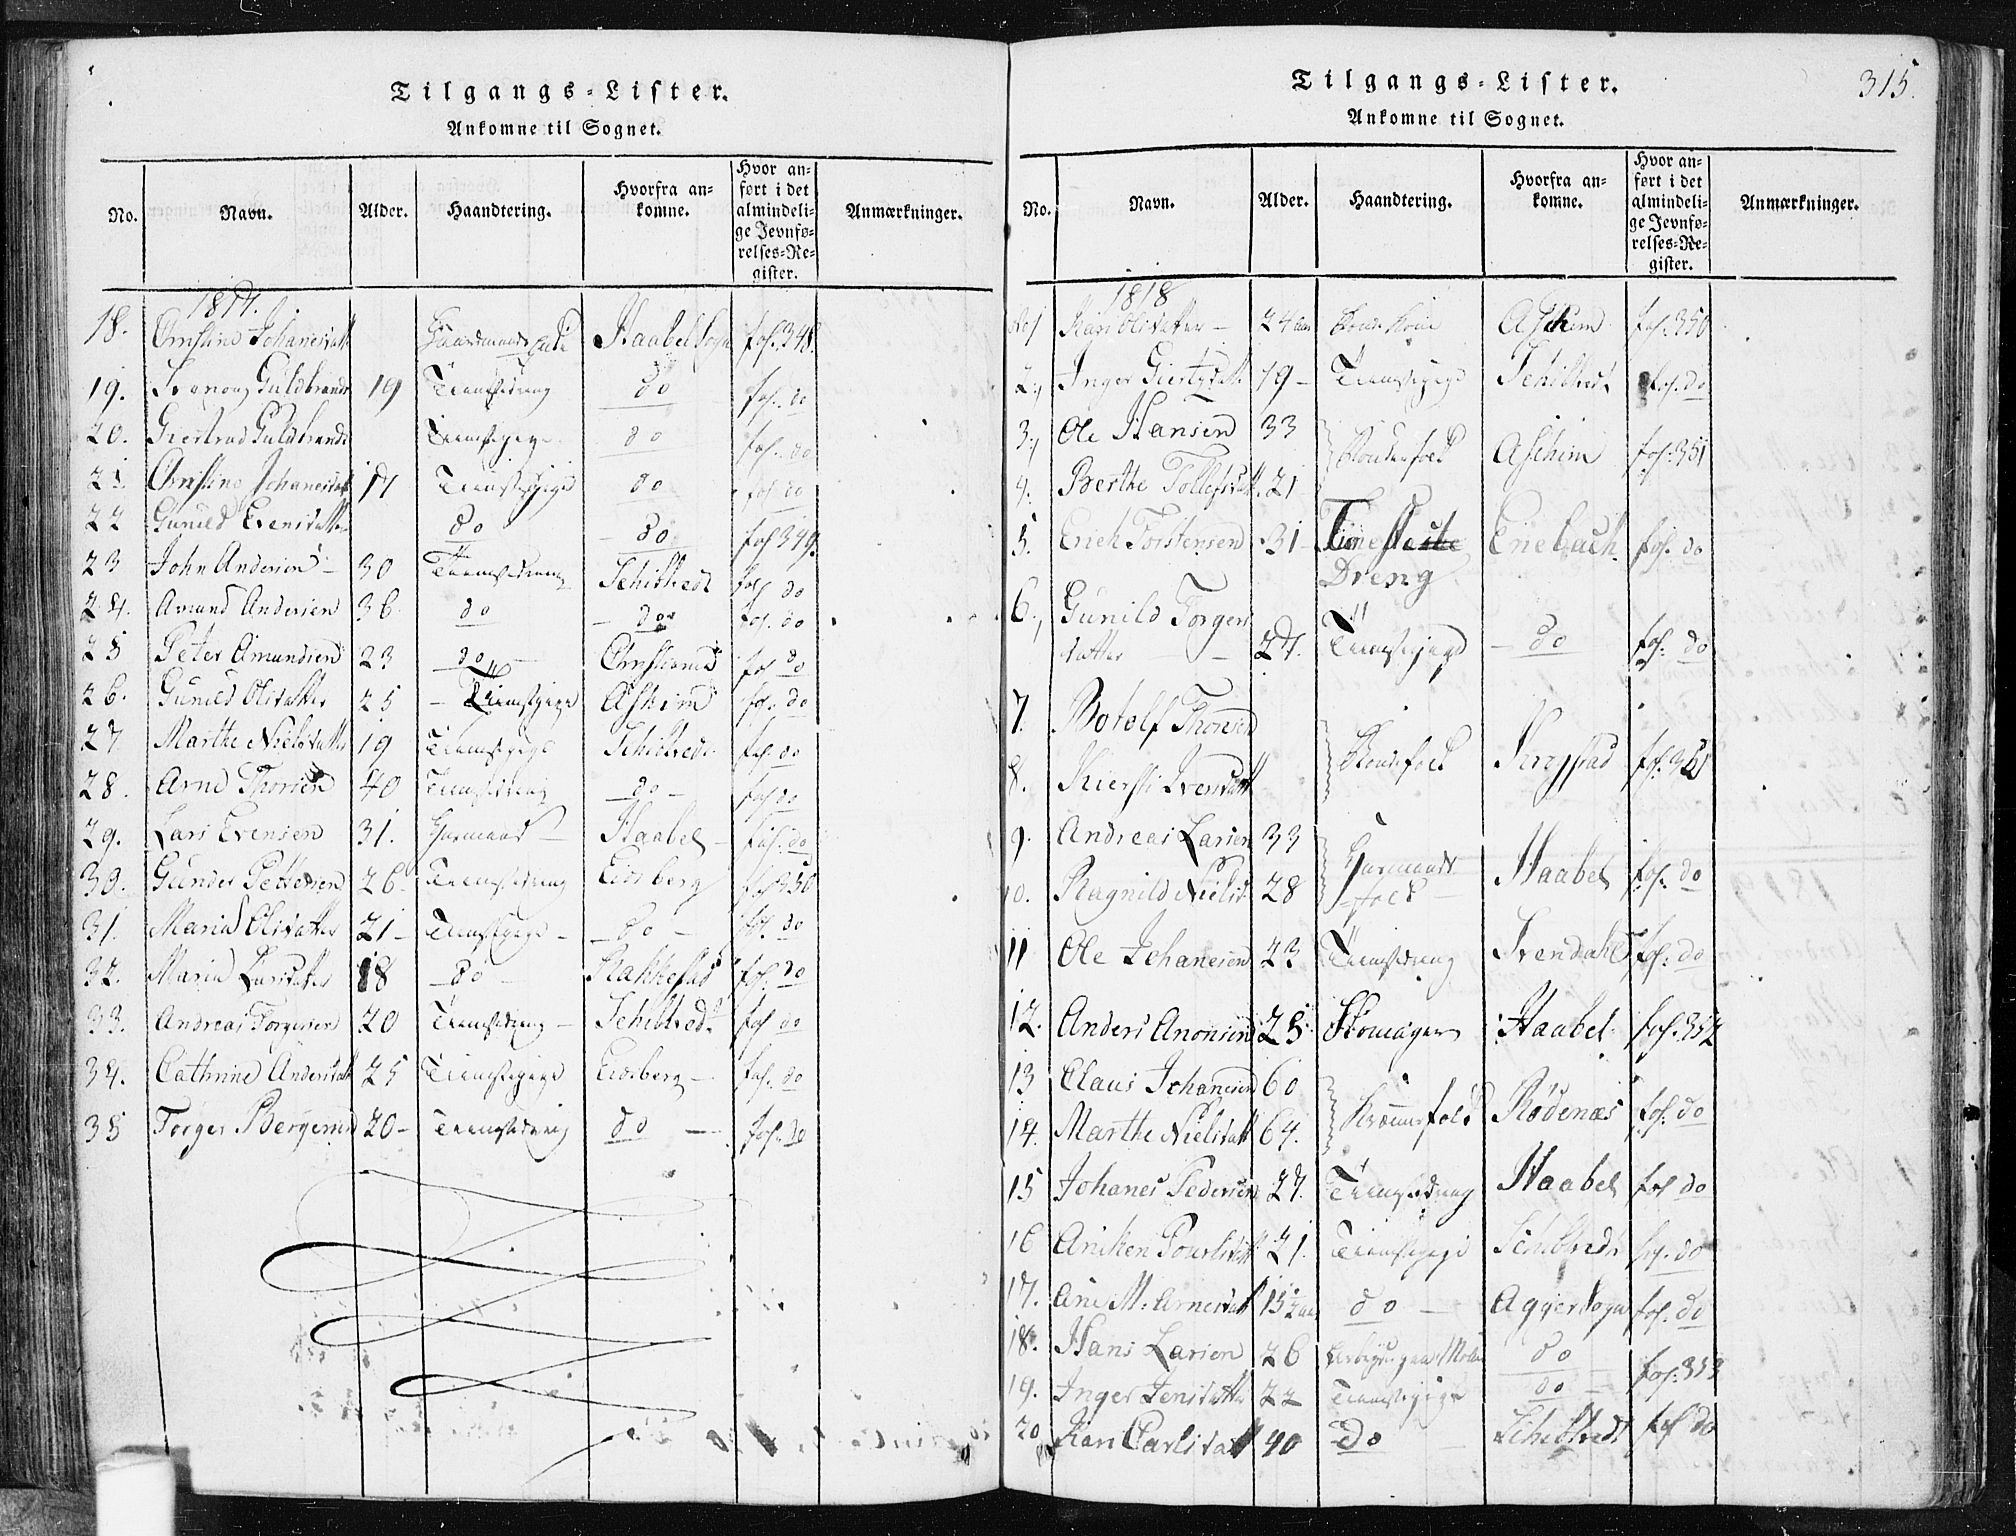 Tilgangs-Lister.
Ankomne til Sognet.
No. Navn. Alder. Haandtering. Hvorfra ankomne. Hvor anført i det almindelige Jevnførelses-Register. Anmærkninger.
1817.
18. Christine Johanesdatt Haabel Sogn fol. 348.
19. Guldbrands 19 Tienistedreng do fol. do
20. Giertrud Guldbrands Tienistepige do fol. do
21. Christine Johanesdatt 17 Tienistepige do fol. do
22 Gunild Evensdatter do do fol 349.
23 John Andersen 30 Tienistedreng Schibtvedt fol do
24. Amund Andersen 36. do do fol. do
25 Peter Amundsen 23 do Christiania fol do
26. Gunild Olisdatter 25 Tienistepige Askim fol. do
27 Marthe Nielsdatter 19 Tienistepige Schibtvedt fol. do
28. Arne Thorsen 40 Tienistedreng do fol do
29. Lars Evensen 31. Huusmand Haabel fol. do
30. Gunder Pettersen 26 Tienistedreng Eidsberg fol 350
31. Maria Olisdatter 21 Tienistepige do fol. do
32. Maria Larsdatter 18 do Rakkestad fol. do
33. Andreas Torgersen 20 Tienistedreng Schibtved. fol do
34. Cathrine Andersdatt 25 Tienistepige Eidsberg fol. do
35 Torger Bergersen 20 Tienistedreng do fol. do
315.
Tilgangs-Lister.
Ankomne til Sognet.
No. Navn. Alder. Haandtering. Hvorfra ankomne. Hvor anført i det almindelige Jevnførelses-Register. Anmærkninger.
1818
No 1 Kari Olisdatter 24 Aar Bonde Kone Aschim fol. 350
2, Inger Giertsdatt 19 Tienistepige Schibtvedt fol. do
3, Ole Hansen 33 Bondefolk Aschim fol. 351
4. Berthe Tollefsdatt 21
5. Erich Torstensen 31 Tieneste Enebach fol. do
Dreng
6, Gunild Torgers
datter 27. Tienistepige do fol. do
7. Botolf Thoresen Bondefolk Krogstad fol. 351
8. Kiersti Iversdatt
9. Andreas Larsen 33 Huusmands Haabel fol. do
10. Ragnild Nielsd 28 folk
11 Ole Johanesen 23 Tienistedreng Trendahl fol. do
12. Anders Anonsen 25 Skomager Haabel fol. 352
13 Claus Johanesen 60 Rødenæs fol. do
14. Marthe Nielsdatt 64.
15 Johanes Pedersen 27. Tienistedreng Haabel fol do
16 Aniken Poulsdatt 21. Tienistepige Schibtvedt fol. do
17. Ane M: Arnesdatt 15½ Aar do Aggersogn fol. do
18. Hans Larsen 26 do fol. 353
19. Inger Jensdatter 22 Tienistepige do
20 Kari Carlsdatt 40 do Schibtvedt fol do